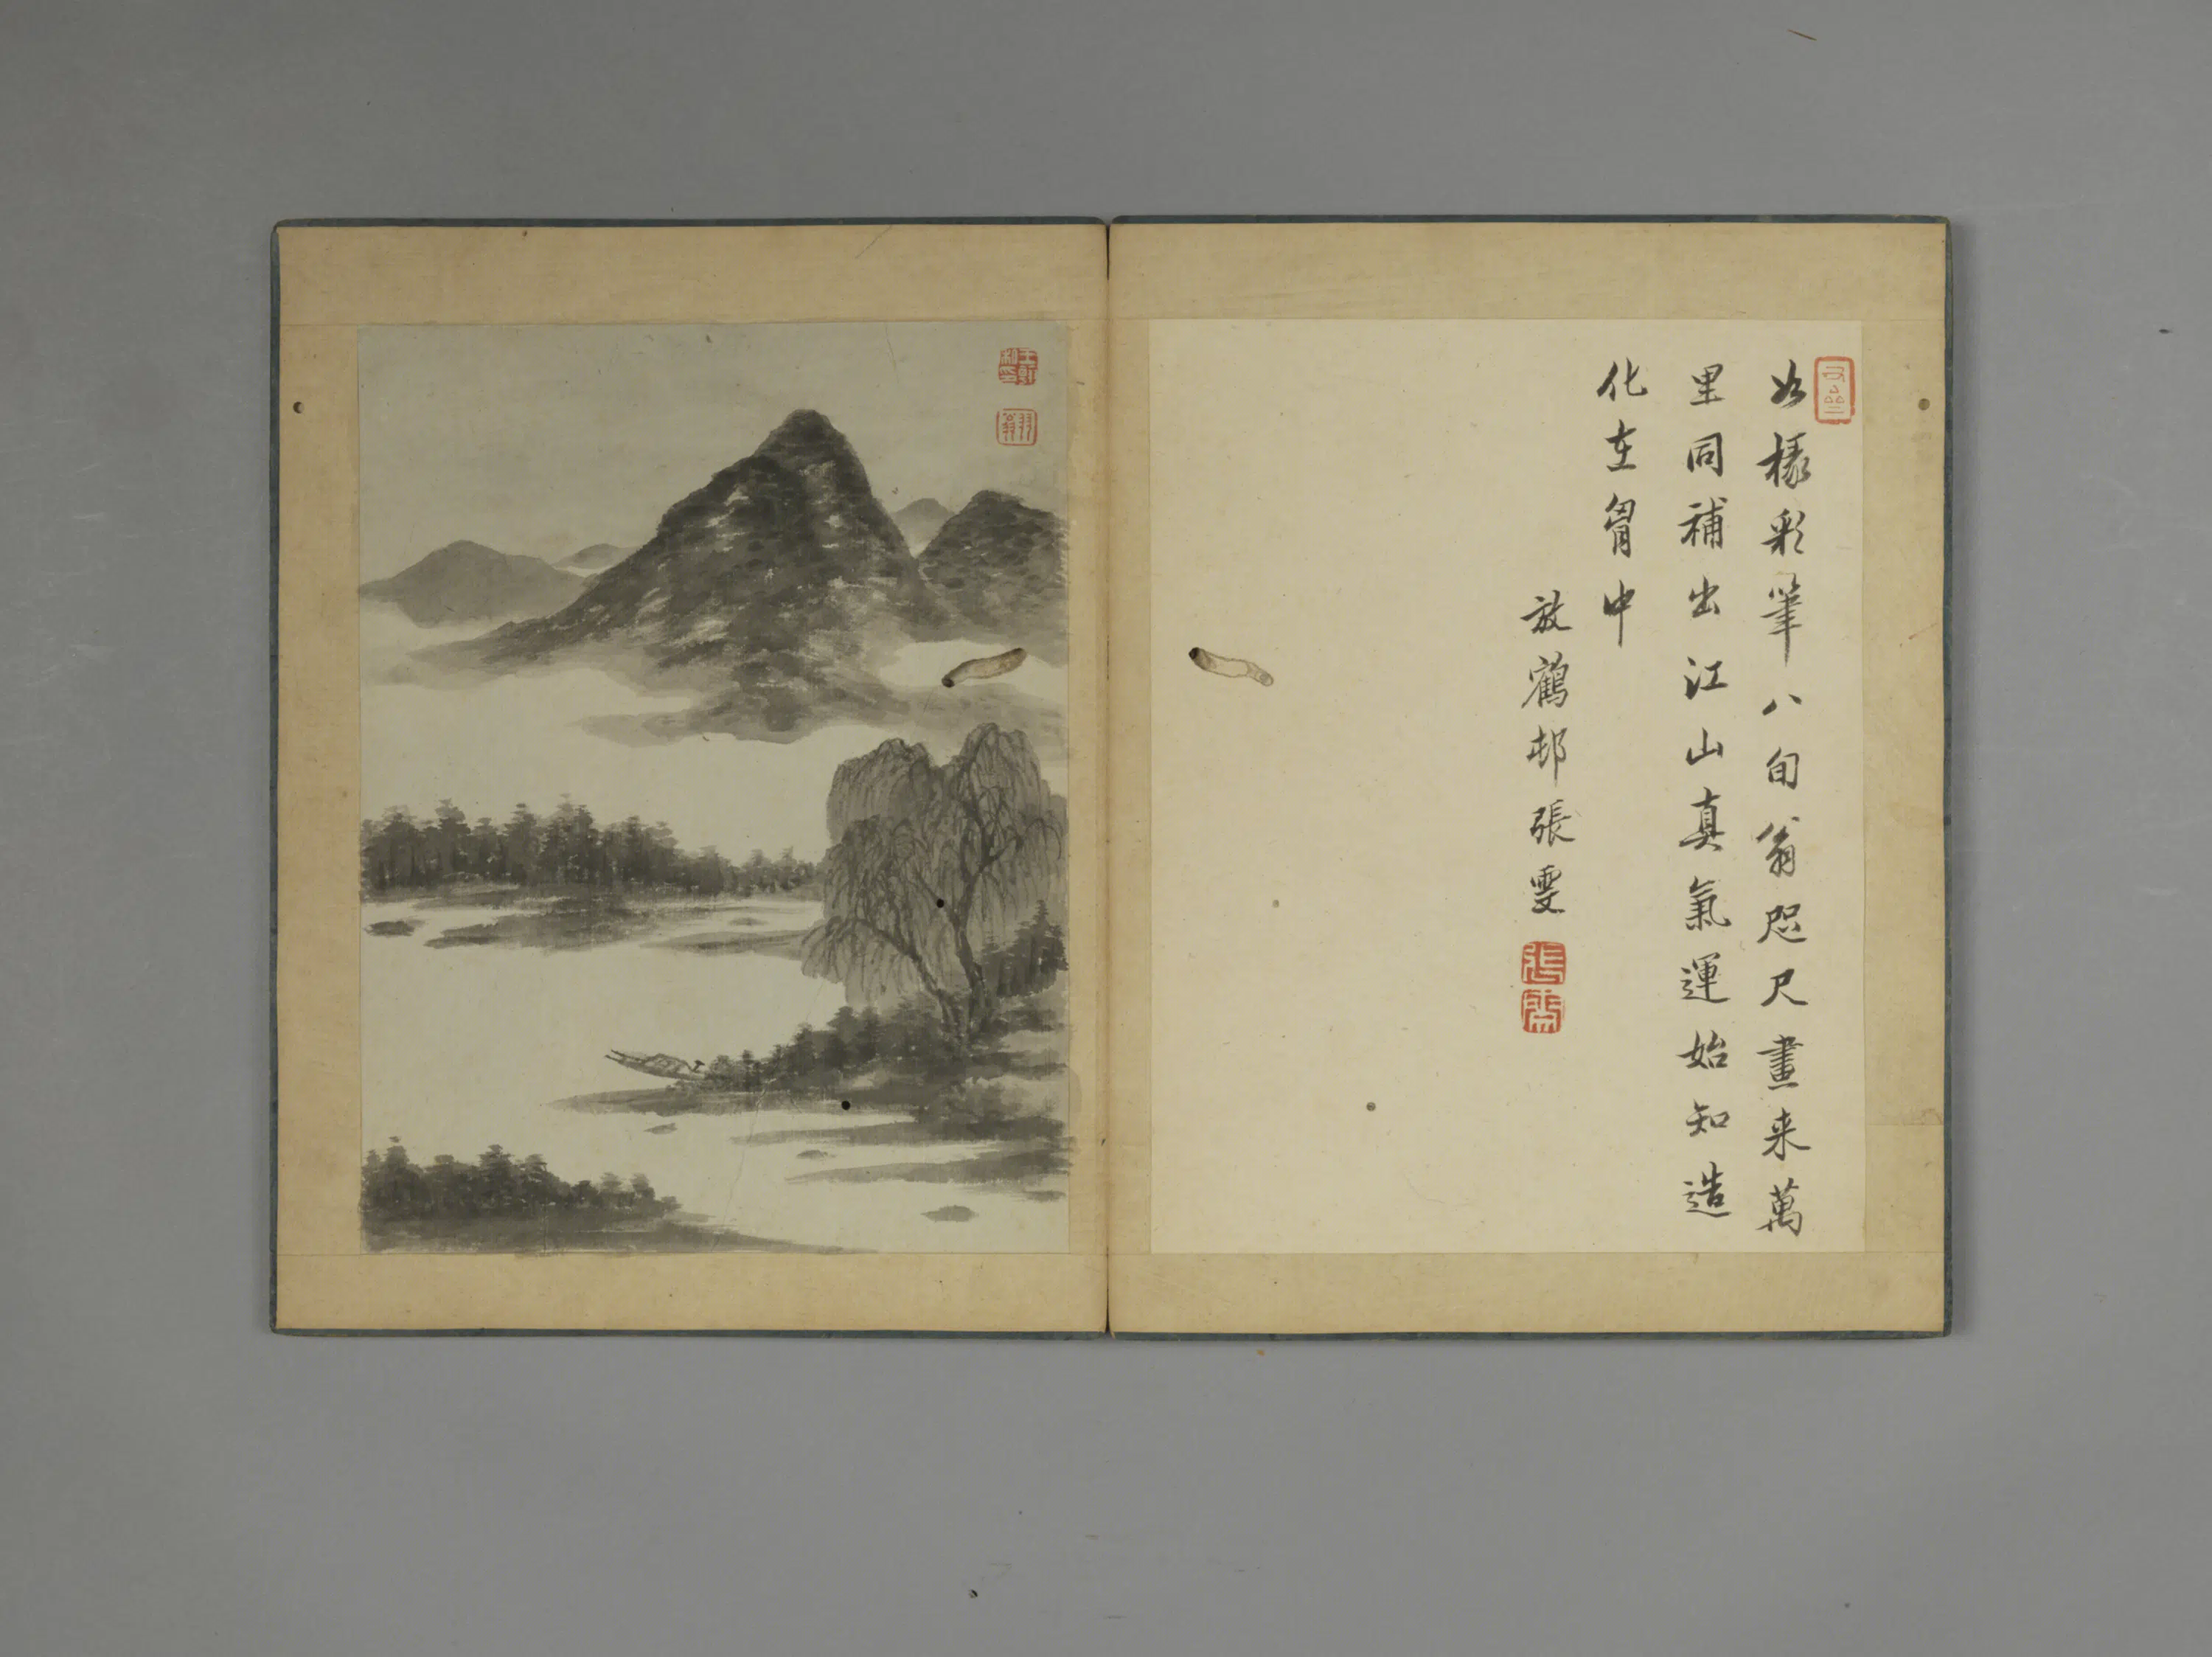 如椽彩筆八旬翁咫尺畫来萬
里同補出江山真氣運始知造
化在胷中
放鶴邨張雯